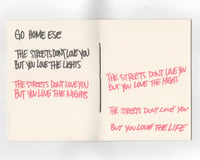 GO HOME ESE
THE STREETS DON'T LOVE YOU
BUT YOU LOVE THE LIGHTS
THE STREETS DON'T LOVE YOU
BUT YOU LOVE THE NIGHTS
THE STREETS DON'T LOVE YOU
BUT YOU LOVE THE HIGHS
THE STREETS DON'T LOVE YOU
BUT YOU LOVE THE LIFE